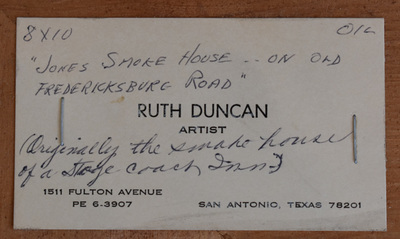 8X10 OIL
"JONES SMOKE HOUSE -- ON OLD
FREDERICKSBURG ROAD"
RUTH DUNCAN
ARTIST
(Originally the smoke house
of a Stage coach Inn)
1511 FULTON AVENUE
PE 6-3907 SAN ANTONIO, TEXAS 78201